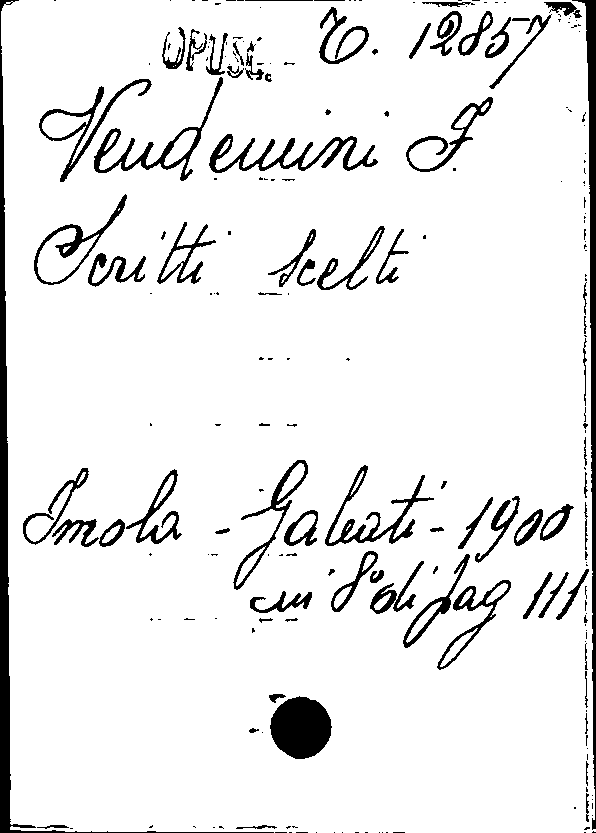 OPUSC. T. 12857
Vendemini F.
Scritti scelti
Imola - Galeati - 1900
in 8° di pag 111